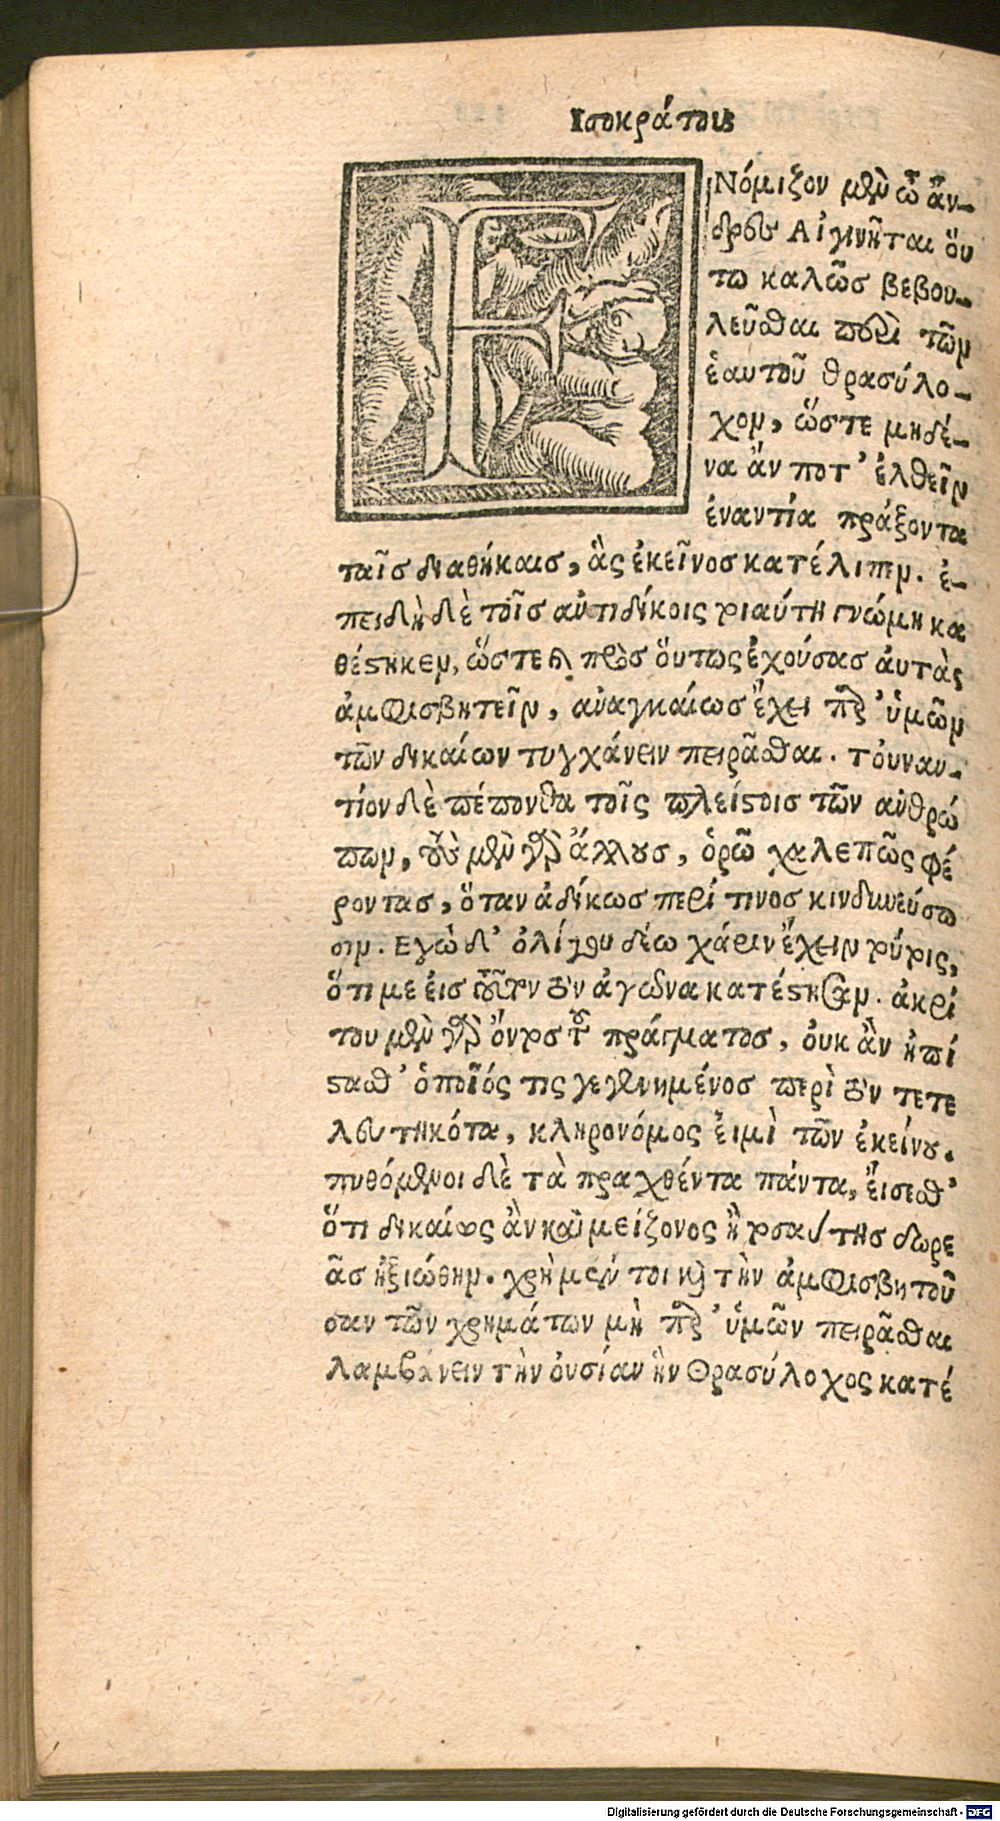 Ισοκράτους
ΕΝόμιζον μὲν ὦ ἄν-
δρες Αἰγινῆται ὅυ
τω καλῶσ βεβου-
λεῦσθαι περὶ τῶν
ἑαυτοῦ θρασύλο-
χον, ὥστε μηδέ-
να ἄν ποτ’ ἐλθεῖν
ἐναντία πράξοντα
ταῖσ διαθήκαισ, ἃς ἐκεῖνοσ κατέλιπεν. ἐ-
πειδὴ δὲ τοῖσ ἀντιδίκοις τοιαύτη γνώμη κα
θέστηκεν, ὥστε καὶ πρὸσ ὅυτως ἐχούσασ ἀυτὰς
ἀμφισβητεῖν, ἀναγκαίωσ ἔχει παρ’ ὑμῶν
τῶν δικαίων τυγχάνειν πειρᾶσθαι. τὀυναν-
τίον δὲ πέπονθα τοῖς πλείστοισ τῶν ἀνθρώ
πων, τοὺς μὲν γὰρ ἄλλουσ, ὁρῶ χαλεπῶς φέ
ροντασ, ὅταν ἀδίκωσ περί τινοσ κινδυνεύσω
σιν. Εγὼ δ’ ὀλίγου δέω χάριν ἔχειν τούτοις,
ὅτι με ἐισ τοῦτον τὸν ἀγῶνα κατέστησαν. ἀκρί
του μὲν γὰρ ὄντοσ τοῦ πράγματοσ, ὀυκ ἂν ἠπί
στασθ’ ὁποῖός τις γεγενημένοσ περὶ τὸν τετε
λευτηκότα, κληρονόμος ἐιμὶ τῶν ἐκείνου.
πυθόμενοι δὲ τὰ πραχθέντα πάντα, ἔισεσθ’
ὅτι δικαίως ἂν καὶ μείζονος ἢ τοσαύτησ δωρε
ᾶσ ἠξιώθην. χρὴ μέν τοι καὶ τὴν ἀμφισβητοῦ
σαν τῶν χρημάτων μὴ παρ’ ὑμῶν πειρᾶσθαι
λαμβάνειν τὴν ὀυσίαν ἣν Θρασύλοχος κατέ
Digitalisierung gefördert durch die Deutsche Forschungsgemeinschaft - DFG